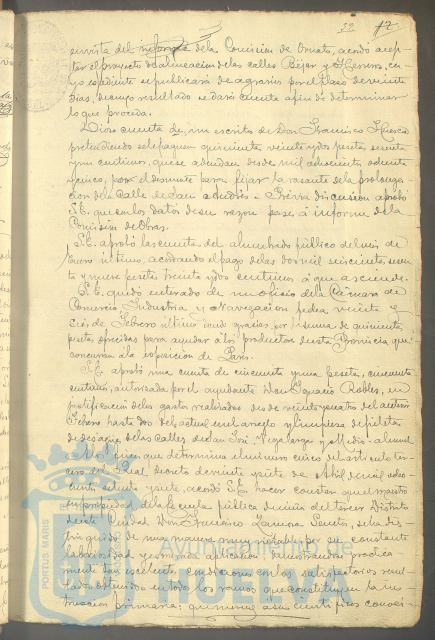 32 12
en vista del informe de la Comisión de Ornato, acordó acep-
tar el proyecto de alineación de las calles Béjar y Herrero, cu-
yo espediente se publicará de agravios por el plazo de veinte
días, de cuyo resultado se dará cuenta a fin de determinar
lo que proceda.
Dióse cuenta de un escrito de Don Francisco
pretendiendo se le paguen quinientas veinte y dos pesetas, sesenta
y un centimos, que se adeudan desde mil ochocientos ochenta
y cinco, por el desmonte para fijar la rasante de la prolonga-
cion de la Calle de San Andrés. Previa discusion aprobó
S.E. que con los datos de su razon pase á informe de la
Comisión de Obras.
S.E. aprobó las cuentas del alumbrado público del mes de
Enero último, acordando el pago de las dos mil seiscientas
y nueve pesetas, treinta y dos centimos á que asciende.
S.E. quedó enterado de un oficio de la Cámara de
Comercio, Industria y Navegacion fecha veinte y
seis de Febrero último dando gracias por la suma de quinientas
pesetas ofrecidas para ayudar á los productores de esta Provincia que
concurran á la esposicion de Paris.
S.E. aprobó una cuenta de cincuenta y una pesetas, cincuenta
centimos, autorizada por el ayudante Don Ignacio Robles, en
justificación de los gastos realizados desde veinte y cuatro del anterior
Febrero hasta dos del actual en el arreglo y limpieza de
de desagüe de las calles de San José, Vega larga y Medio-almud
á lo que determina el número cinco del artículo ter-
cero del Real Decreto de veinte y siete de Abril de mil ocho-
cientos ochenta y siete, acordó S.E. hacer constar que el maestro
en propiedad de la Escuela pública de niños del tercer Distrito
de esta Ciudad Don Francisco Zamora se ha dis-
tinguido de una manera muy notable por su constante
laboriosidad y esmerada aplicación, demostrando practica
mente tan escelentes condiciones en los satisfactorios resul-
tados obtenido en todos los ramos que constituyen la ins-
truccion primaria; que une á su
PORTUS MARIS
Ayuntamiento de
HUELVA